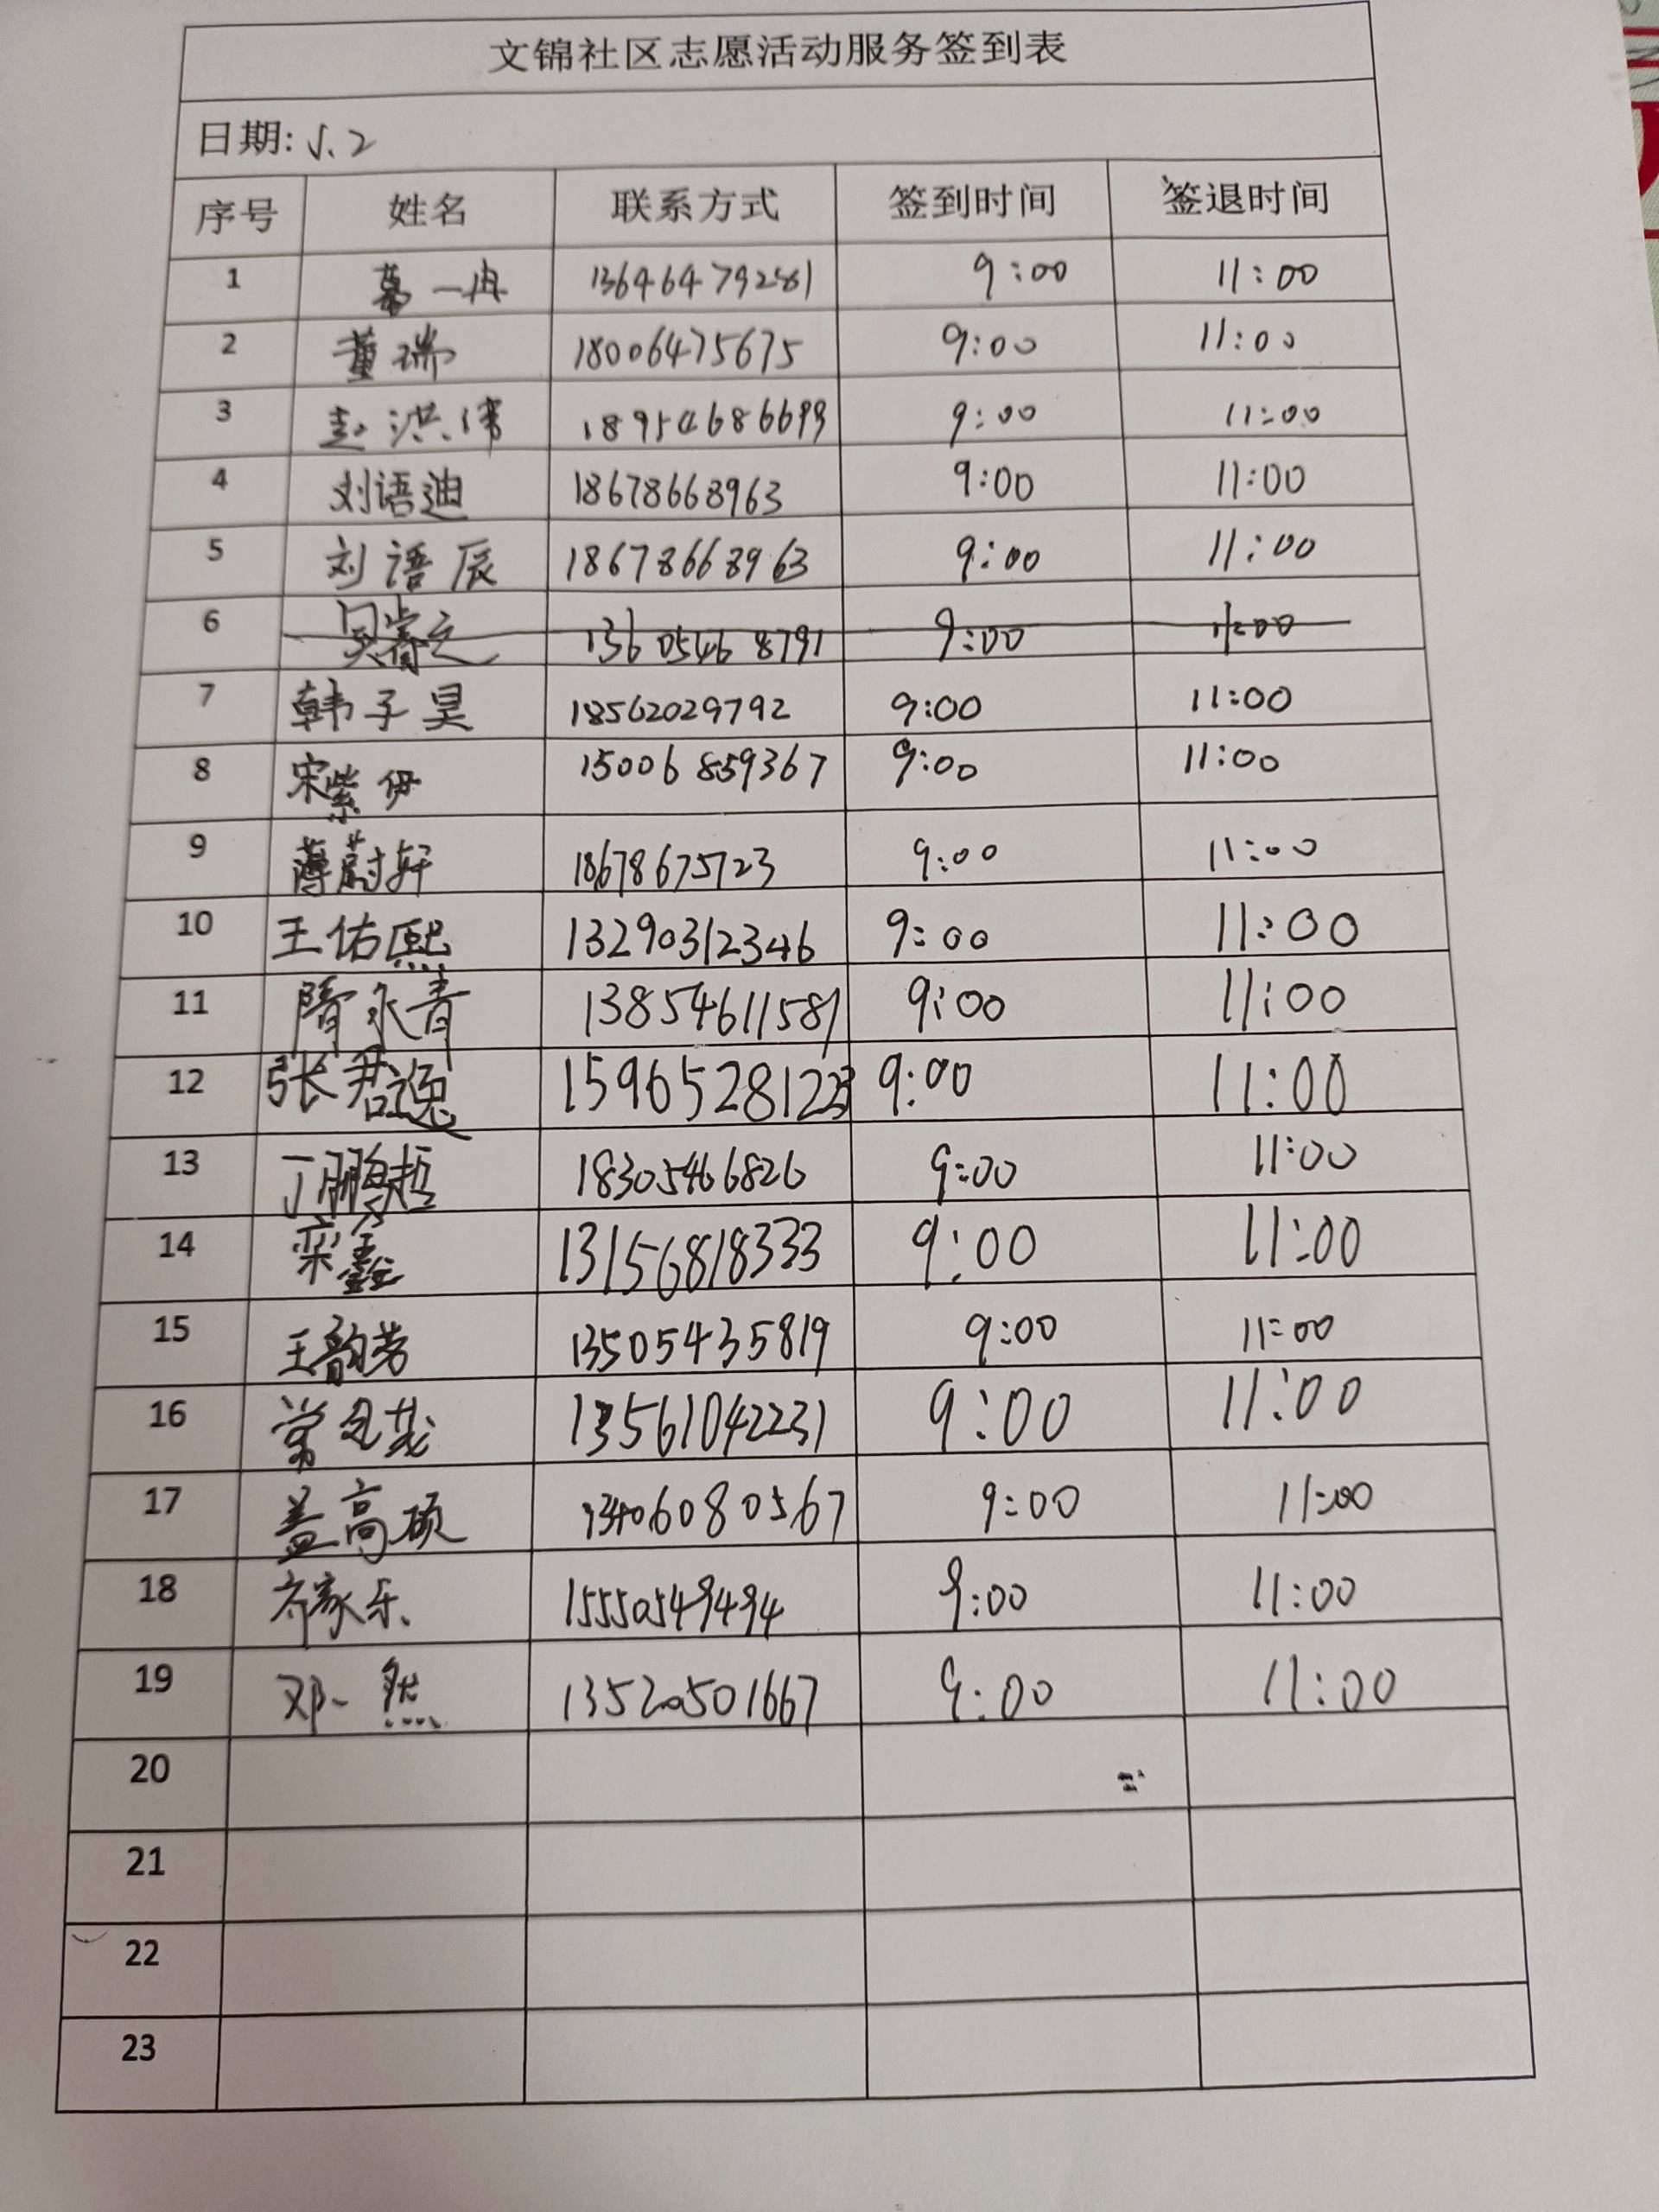 文锦社区志愿活动服务签到表
日期: 5.2
序号 姓名 联系方式 签到时间 签退时间
1 葛一冉 13646479281 9:00 11:00
2 董瑞 18006475675 9:00 11:00
3 赵洪伟 18954686699 9:00 11:00
4 刘语迪 18678668963 9:00 11:00
5 刘语辰 18678668963 9:00 11:00
6 13605468791 9:00 11:00
7 韩子昊 18562029792 9:00 11:00
8 宋紫伊 15006859367 9:00 11:00
9 薄蔚轩 18678675723 9:00 11:00
10 王佑熙 13290312346 9:00 11:00
11 隋永青 13854611581 9:00 11:00
12 张君逸 15965281223 9:00 11:00
13 丁鹏哲 18305466826 9:00 11:00
14 栾鑫 13156818333 9:00 11:00
15 王韵芳 13505435819 9:00 11:00
16 13561042231 9:00 11:00
17 盖高硕 13406080567 9:00 11:00
18 齐家乐 15550549494 9:00 11:00
19 邓一然 13520501667 9:00 11:00
20
21
22
23